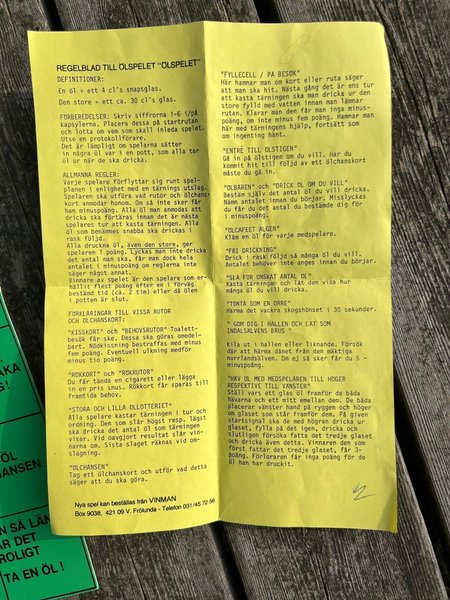 REGELBLAD TILL ÖLSPELET "ÖLSPELET"
DEFINITIONER:
En öl = ett 4 cl's snapsglas.
Den store = ett ca. 30 cl's glas.
FÖRBEREDELSER: Skriv siffrorna 1-6 i/på
kapsylerna. Placera dessa på startrutan
och lotta om vem som skall inleda spelet.
Utse en protokollförare.
Det är lämpligt om spelarna sätter
in några öl var i en pott, som alla tar
öl ur när de ska dricka.
ALLMÄNNA REGLER:
Varje spelare förflyttar sig runt spel-
planen i enlighet med en tärnings utslag.
Spelaren ska utföra vad rutor och ölchans-
korten anmodar honom. Om så inte sker får
han minuspoäng. Alla öl man anmodas att
dricka ska förtäras innan det är nästa
spelares tur att kasta tärningen. Alla
öl som benämnes snabba ska drickas i
rask följd.
Alla druckna öl, även den store, ger
spelaren 1 poäng. Lyckas man inte dricka
det antal man ska, får man dock hela
antalet i minuspoäng om reglerna inte
säger något annat.
Vinnare av spelet är den spelare som er-
hållit flest poäng efter en i förväg
bestämd tid (ca. 2 tim) eller då ölen
i potten är slut.
FÖRKLARINGAR TILL VISSA RUTOR
OCH ÖLCHANSKORT:
"KISSKORT" och "BEHOVSRUTOR" Toalett-
besök får ske. Dessa ska göras omedel-
bart. Nödkissning bestraffas med minus
fem poäng. Eventuell ulkning med minus
tio poäng.
"RÖKKORT" och "RÖKRUTOR"
Du får tända en cigarett eller lägga
in en pris snus. Rökkort får sparas till
framtida behov.
"STORA OCH LILLA ÖLLOTTERIET"
Alla spelare kastar tärningen i tur och
ordning. Den som slår högst resp. lägst
ska dricka det antal öl som tärningen
visar. Vid oavgjort resultat slår vin-
narna om. Sista slaget räknas vid om-
slagning.
"ÖLCHANSEN"
Tag ett ölchanskort och utför vad detta
säger att du ska göra.
Nya spel kan beställas från VINMAN
Box 9038, 421 09 V. Frölunda - Telefon 031/45 72 56
"FYLLECELL / PÅ BESÖK"
Här hamnar man om kort eller ruta säger
att man ska hit. Nästa gång det är ens tur
att kasta tärningen ska man dricka ur den
store fylld med vatten innan man lämnar
rutan. Klarar man den får man inga minus-
poäng, om inte minus fem poäng. Hamnar man
här med tärningens hjälp, fortsätt som
om ingenting hänt.
"ENTRE TILL ÖLSTIGEN"
Gå in på ölstigen om du vill. Har du
kommit hit till följd av ett ölchanskort
måste du gå in.
"ÖLBAREN" och "DRICK ÖL OM DU VILL"
Bestäm själv det antal öl du vill dricka.
Nämn antalet innan du börjar. Misslyckas
du får du det antal du bestämde dig för
i minuspoäng.
"ÖLCAFEET ÄLGEN"
Kläm en öl för varje medspelare.
"FRI DRICKNING"
Drick i rask följd så många öl du vill.
Antalet behöver inte anges innan du börjar.
"SLÅ FÖR ÖNSKAT ANTAL ÖL"
Kasta tärningen och låt den visa hur
många öl du vill dricka.
"TONTA SOM EN ORRE"
Härma det vackra skogshönset i 30 sekunder.
" GÖM DIG I HALLEN OCH LÅT SOM
INDALSÄLVENS BRUS "
Kila ut i hallen eller liknande. Försök
där att härma dånet från den mäktiga
norrlandsälven. Om ej så sker får du 5 -
minuspoäng.
"HÄV ÖL MED MEDSPELAREN TILL HÖGER
RESPEKTIVE TILL VÄNSTER"
Ställ vars ett glas öl framför de båda
hävarna och ett mitt emellan dem. De båda
placerar vänster hand på ryggen och höger
om glaset som står framför dem. På given
startsignal ska de med högran dricka ur
glaset, fylla på det igen, dricka och
slutligen försöka fatta det tredje glaset
och dricka även detta. Vinnaren den som
först fattar det tredje glaset, får 3-
poäng. Förloraren får inga poäng för de
öl han har druckit.
ÖL
HANSEN
N SÅ LÄN
AR DET
ROLIGT
TA EN ÖL !